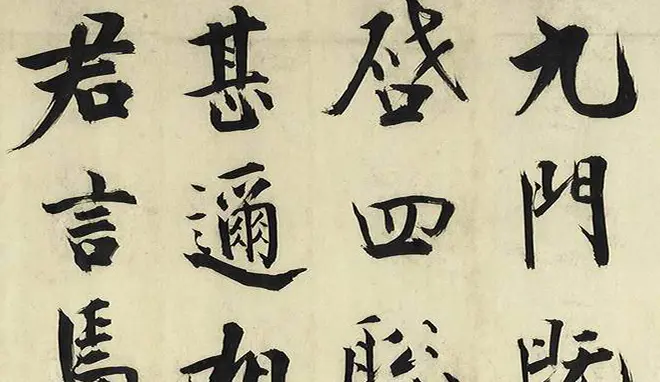 九門既
啓四聰
甚邇相
君言焉